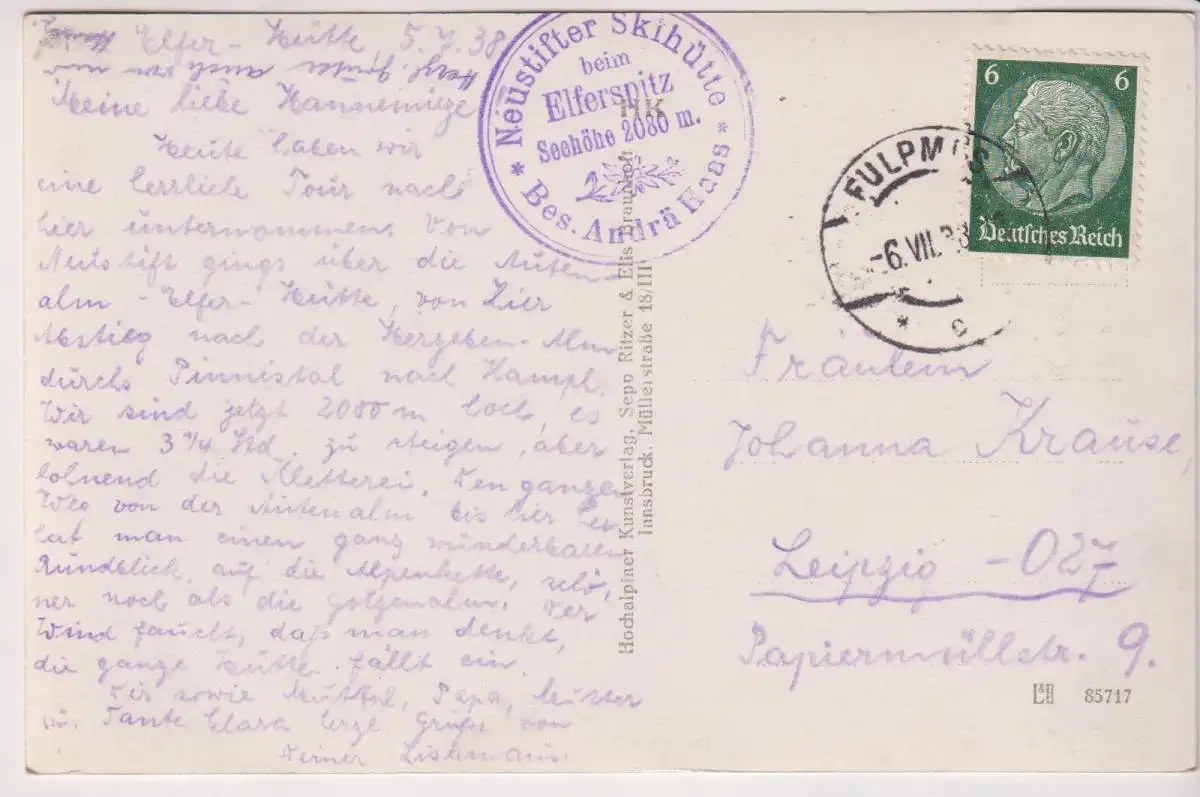 Elfer-Hütte, 5.7.38
Herzl. Grüße auch von mir
Meine liebe Hannemieze
Heute haben wir
eine herrliche Tour nach
hier unternommen. Von
Neustift gings über die Auten-
alm - Elfer-Hütte, von hier
Abstieg nach der Herzeben-Alm
durchs Pinnistal nach Kampl.
Wir sind jetzt 2080 m hoch, es
waren 3 1/4 Std. zu steigen, aber
lohnend die Kletterei. Den ganzen
Weg von der Autenalm bis hier her
hat man einen ganz wunderbaren
Rundblick auf die Alpenkette, schö,
ner noch als die Galzenalm. Der
Wind faucht, daß man denkt,
die ganze Hütte fällt ein.
Dir sowie Muttel, Papa, Mutter
u. Tante Clara herzl. Grüße von
Deiner Lisamaus.
* Neustifter Skihütte *
beim
Elferspitz
Seehöhe 2080 m.
Bes. Andrä Haas
HK
Hochalpiner Kunstverlag, Sepp Ritzer & Elis Braunhoff
Innsbruck, Müllerstraße 18/III
6 6
Deutsches Reich
FULPMES
-6.VII.38
* c
Fräulein
Johanna Krause,
Leipzig -O27
Papiermühlstr. 9.
L&B 85717